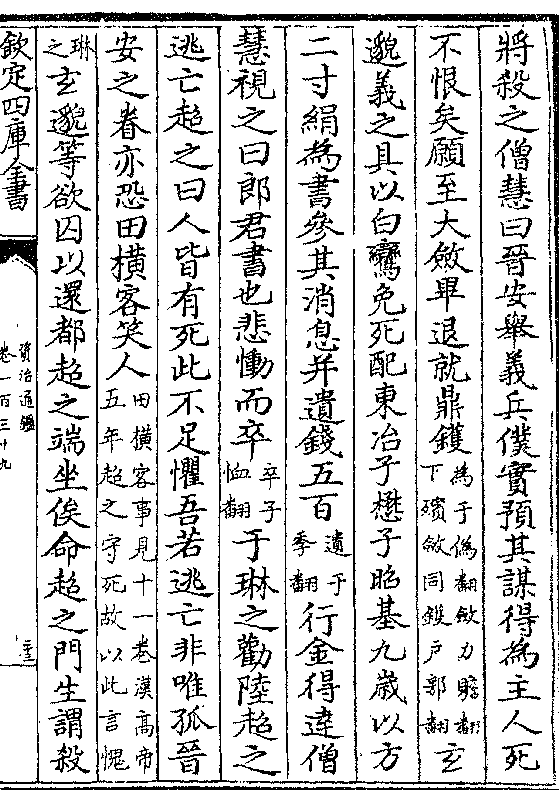 將殺之僧慧曰晉安舉義兵僕實預其謀得為主人死
不恨矣願至大斂畢退就鼎鑊為于偽翻斂力贍翻下殯斂同鑊戶郭翻玄
邈義之具以白鸞免死配東冶子懋子昭基九歲以方
二寸絹為書參其消息并遺錢五百遺于季翻行金得達僧
慧視之曰郎君書也悲慟而卒卒子恤翻于琳之勸陸超之
逃亡超之曰人皆有死此不足懼吾若逃亡非唯孤晉
安之眷亦恐田横客笑人田横客事見十一卷漢高帝五年超之守死故以此言愧
琳之玄邈等欲囚以還都超之端坐俟命超之門生謂殺
欽定四庫全書
資治通鑑
卷一百三十九